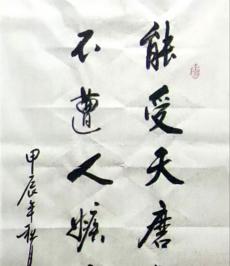 能受天磨
不遭人嫉
甲辰年秋月